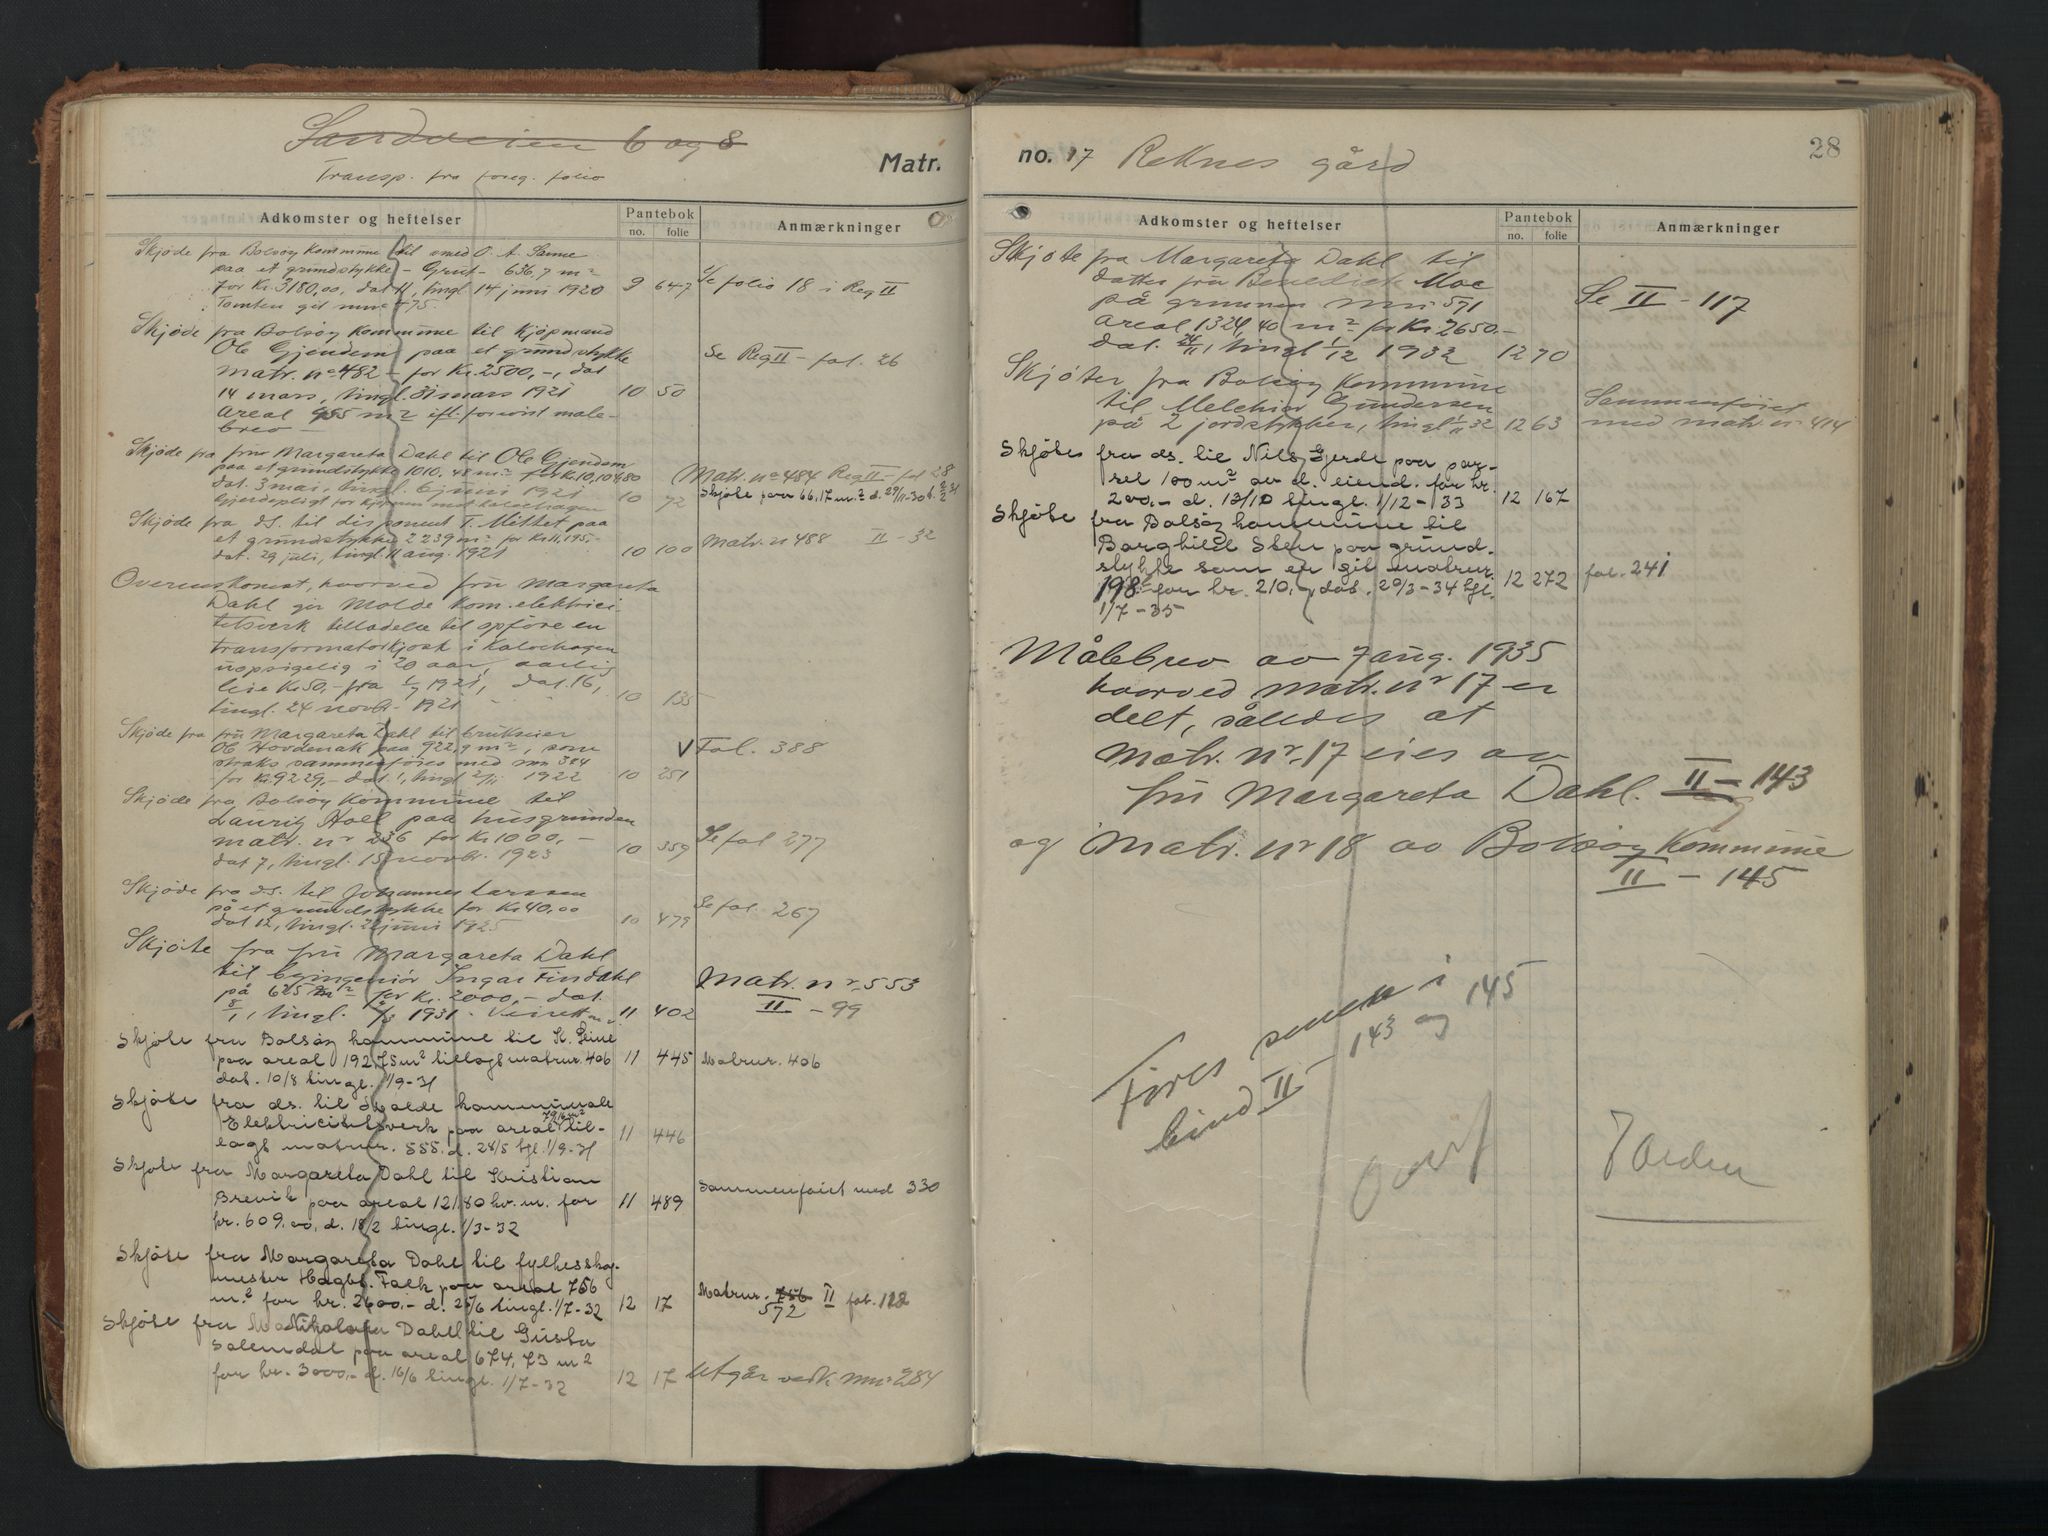 Sandveien 6 og 8
Transp. fra foreg. folio
Matr.
Adkomster og heftelser
Pantebok
no. folie
Anmærkninger
Skjøde fra Bolsøy Kommune til smed O. A. Sanne
paa et grundstykke - Grut - 636,7 m²
for Kr. 3180,00, dat 11, tingl. 14 juni 1920 9 647 Se folio 18 i Reg II
Tomten git mnr 475
Skjøde fra Bolsøy Kommune til Kjøpmand
Ole Gjendem paa et grundstykke
matr. no 482 - for Kr. 2500,-, dat Se Reg II - fol. 26
14 mars, tingl. 31 mars 1921 10 50
areal 955 m² efl. forevist maale-
brev
Skjøde fra fru Margareta Dahl til Ole Gjendem
paa et grundstykke 1010,48 m² for Kr. 10,104,80 Matr. no 484 Reg II - fol 28
dat. 3 mai, tingl. 6 juni 1921 10 72 Skjøte paa 66,17 m.² d. 29/11-30
Gjerdepligt for kjøperen mot Kalvehagen
Skjøde fra ds. til disponent T. Mittet paa
et grundstykke 2239 m² for Kr. 11,195,-
dat. 29 juli, tingl. 11 aug. 1921 10 100 Matr. nr 488 II - 32
Overenskomst, hvorved fru Margareta
Dahl gir Molde kom. elektrici-
tetsverk tilladelse til opføre en
transformatorkjosk i Kalvehagen
uopsigelig i 20 aar, aarlig
leie Kr 50,- fra 1/9 1921, dat. 16,
tingl. 24 novbr. 1921 10 135
Skjøde fra fru Margareta Dahl til bruksier
Ole Hovdenak paa 922,9 m², som V Fol. 388
straks sammenføies med mnr 384
- for Kr. 9229,- dat 1, tingl 2/11 1922 10 251
Skjøde fra Bolsøy Kommune til
Lauritz Holl paa husgrunden
matr. nr 236 for Kr 1000,- Se fol 277
dat 7, tingl. 15 novbr. 1923 10 359
Skjøde fra ds. til Johannes Larssen
på et grundstykke for Kr. 40,00 Se fol. 267
dat 12, tingl. 22 juni 1925 10 479
Skjøte fra fru Margareta Dahl
til byingeniør Ingar Findahl Matr. nr. 553
på 625 m² for Kr. 2000,- dat. II - 99
8/1, tingl. 1931. Veirett 11 402
Skjøte fra Bolsøy kommune til K. Seine
paa areal 192,75 m² tillagt matrnr. 406 11 445 Matrnr. 406
dat. 10/8 tingl. 1/9-31
Skjøte fra ds. til Molde kommunale
Elektricitetsverk paa areal 79,16 m² til-
lagt matrnr. 555. d. 28/5 tgl. 1/9-31 11 446
Skjøte fra Margareta Dahl til Kristian
Brevik paa areal 121,80 kv.m. for 11 489 Sammenføiet med 330
kr. 609.00, d. 18/2 tingl. 1/3-32
Skjøte fra Margareta Dahl til fylkesskog-
mester Hagb. Falk paa areal 756
m.² for kr. 2600.- d. 25/6 tingl. 1/7-32 12 17 Matrnr. 756 II fol. 112
572
Skjøte fra Nikolava Dahl til Gusta
Solemdal paa areal 674,73 m²
for kr. 3000,- d. 16/6 tingl. 1/7-32 12 17 Utgår vedk mnr 284
no. 17 Reknes gård
28
Adkomster og heftelser
Pantebok
no. folie
Anmærkninger
Skjøte fra Margareta Dahl til
datter fru Benedicte Moe
på grunnen mnr 571 Se II - 117
areal 1324,40 m² for Kr 2650.-
dat. 24/11, tingl 1/12 1932 12 70
Skjøter fra Bolsøy Kommune
til Melchior Gundersen Sammenføiet
på 2 jordstykker, tingl 1/11 32 12 63 med matr. nr 414
Skjøte fra ds. til Nils Gjerde paa par-
sel 100 m² av d. eiend. for kr.
200,- d. 13/10 tingl. 1/12-33 12 167
Skjøte fra Bolsøy kommune til
Borghild Sten paa grund-
stykke som er git matrnr.
198 for kr. 210,-, dat. 29/3-34 tgl. 12 272 fol. 241
1/7-35
Målebrev av 7 aug. 1935
hvorved matr. nr 17 er
delt, således at
Matr. nr. 17 eies av
fru Margareta Dahl. II - 143
og Matr. nr 18 av Bolsøy Kommune
II - 145
Føres senere i
bind II - 143 og 145